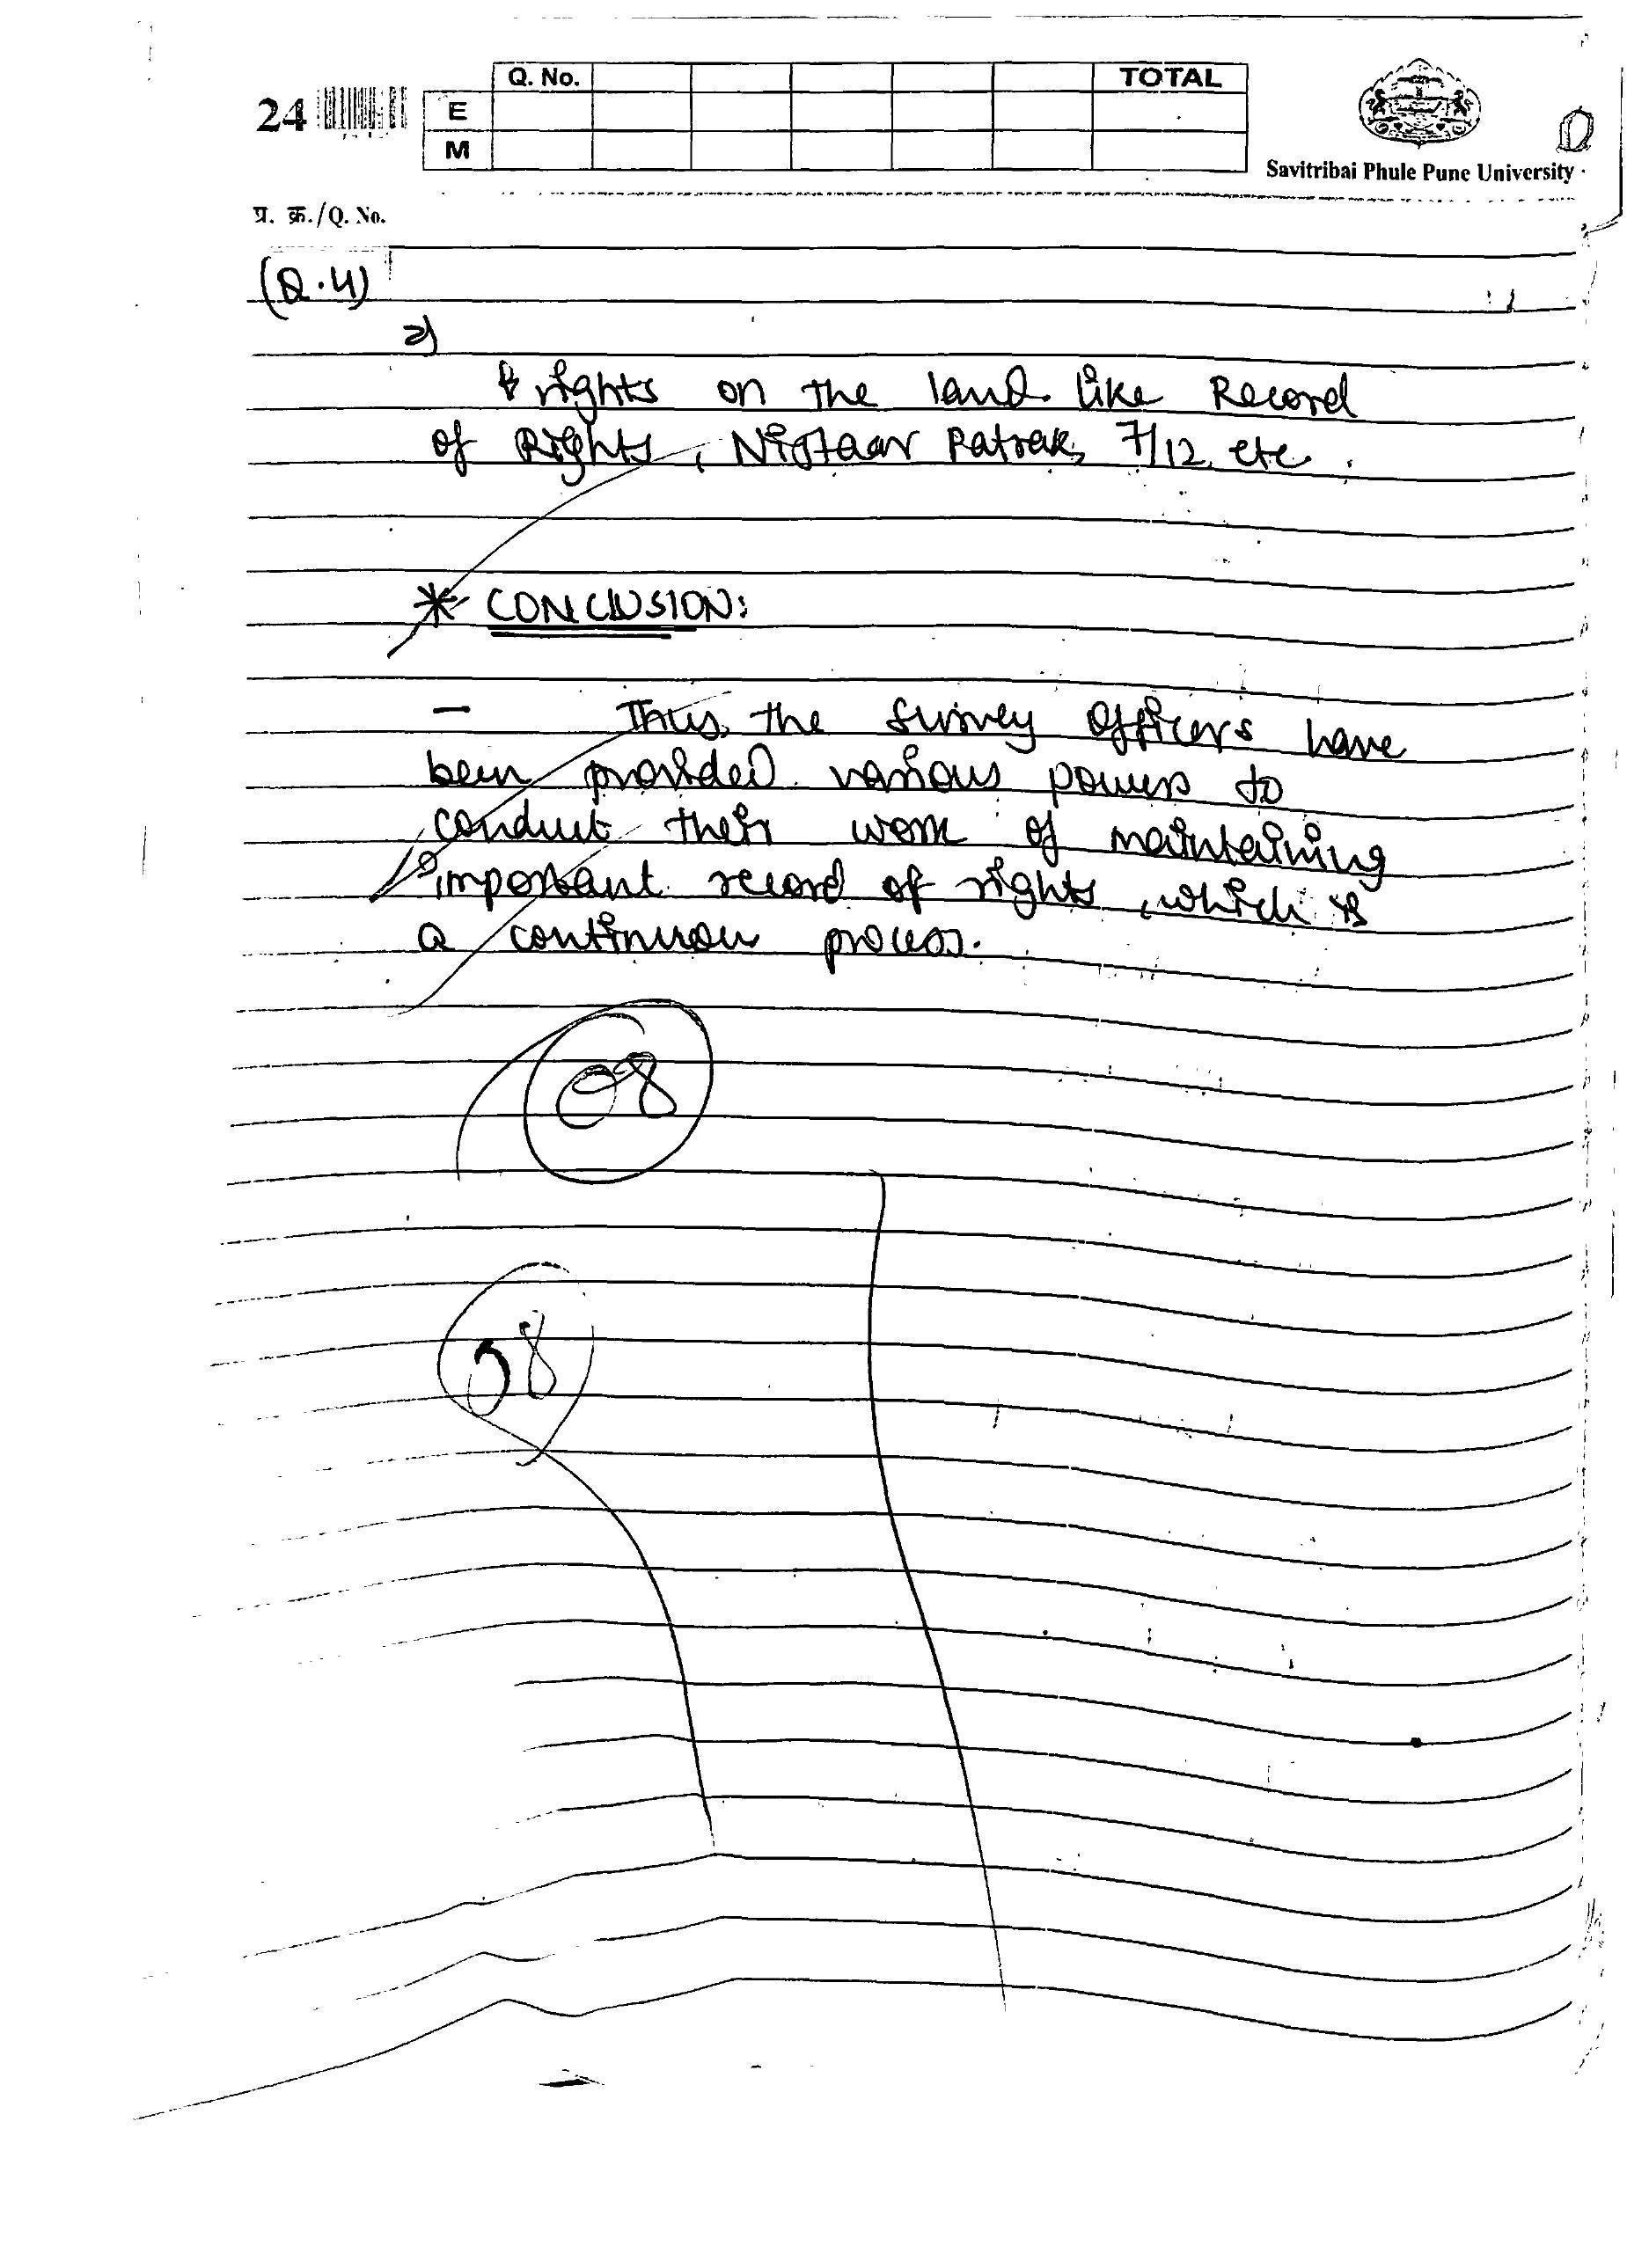 24
Q. No. TOTAL
E
M
Savitribai Phule Pune University
प्र. क्र./Q. No.
(Q.4)
a)
rights on the land. like Record
of Rights, Nistaar Patrak, 7/12, etc.
* CONCLUSION:
- Thus, the survey officers have
been provided various powers to
conduct their work of maintaining
important record of rights, which is
a continuou process.
08
08